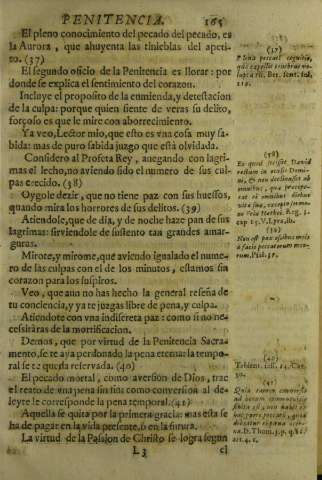 PENITENCIA. 165
El pleno conocimiento del pecado del pecado, es
la Aurora, que ahuyenta las tinieblas del apeti-
to. (37)
El segundo oficio de la Penitencia es llorar: por
donde se explica el sentimiento del corazon.
Incluye el proposito de la enmienda, y detestacion
de la culpa: porque quien siente de veras su delito,
forçoso es que le mire con aborrecimiento.
Ya veo, Lector mio, que esto es vna cosa muy sa-
bida: mas de puro sabida juzgo que està olvidada.
Considero al Profeta Rey, anegando con lagri-
mas el lecho, no aviendo sido el numero de sus cul-
pas crecido. (38)
Oygole dezir, que no tiene paz con sus huessos,
quando mira los horrores de sus delitos. (39)
Atiendole, que de dia, y de noche haze pan de sus
lagrimas: sirviendole de sustento tan grandes amar-
guras.
Mirote, y mirome, què aviendo igualado el nume-
ro de las culpas con el de los minutos, estamos sin
corazon para los suspiros.
Veo, que aun no has hecho la general reseña de
tu conciencia, y ya te juzgas libre de pena, y culpa.
Atiendote con vna indiscreta paz: como si no ne-
cessitàras de la mortificacion.
Demos, que por virtud de la Penitencia Sacra-
mento, se te aya perdonado la pena eterna: la tempo-
ral se te queda reservada. (40)
El pecado mortal, como aversion de Dios, trae
el reato de vna pena sin fin: como conversion al de-
leyte le corresponde la pena temporal. (41)
Aquella se quita por la primera gracia: mas esta se
ha de pagar en la vida presente, ò en la futura.
La virtud de la Passion de Christo se logra segun
L3 el
(37)
Plena peccati cognitio,
(38)
(39)
Non est pax ossibus meis
à facie peccatorum meo-
rum. Psal. 37.
(40)
(41)